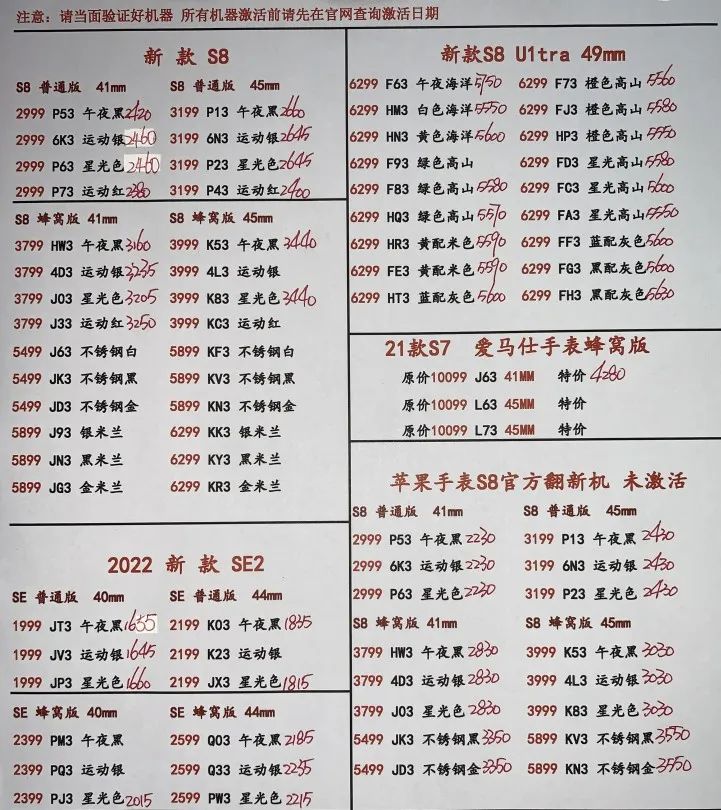 注意：请当面验证好机器 所有机器激活前请先在官网查询激活日期
新 款 S8
S8 普通版 41mm S8 普通版 45mm
2999 P53 午夜黑2420 3199 P13 午夜黑2660
2999 6K3 运动银2460 3199 6N3 运动银2645
2999 P63 星光色2460 3199 P23 星光色2645
2999 P73 运动红2380 3199 P43 运动红2400
S8 蜂窝版 41mm S8 蜂窝版 45mm
3799 HW3 午夜黑3160 3999 K53 午夜黑3440
3799 4D3 运动银3235 3999 4L3 运动银
3799 J03 星光色3205 3999 K83 星光色3440
3799 J33 运动红3250 3999 KC3 运动红
5499 J63 不锈钢白 5899 KF3 不锈钢白
5499 JK3 不锈钢黑 5899 KV3 不锈钢黑
5499 JD3 不锈钢金 5899 KN3 不锈钢金
5899 J93 银米兰 6299 KK3 银米兰
5899 JN3 黑米兰 6299 KY3 黑米兰
5899 JG3 金米兰 6299 KR3 金米兰
2022 新 款 SE2
SE 普通版 40mm SE 普通版 44mm
1999 JT3 午夜黑1655 2199 K03 午夜黑1835
1999 JV3 运动银1645 2199 K23 运动银
1999 JP3 星光色1660 2199 JX3 星光色1815
SE 蜂窝版 40mm SE 蜂窝版 44mm
2399 PM3 午夜黑 2599 Q03 午夜黑2185
2399 PQ3 运动银 2599 Q33 运动银2235
2399 PJ3 星光色2015 2599 PW3 星光色2215
新款S8 U1tra 49mm
6299 F63 午夜海洋5750 6299 F73 橙色高山5560
6299 HM3 白色海洋5550 6299 FJ3 橙色高山5580
6299 HN3 黄色海洋5600 6299 HP3 橙色高山5550
6299 F93 绿色高山 6299 FD3 星光高山5580
6299 F83 绿色高山5580 6299 FC3 星光高山5600
6299 HQ3 绿色高山5570 6299 FA3 星光高山5550
6299 HR3 黄配米色5590 6299 FF3 蓝配灰色5600
6299 FE3 黄配米色5590 6299 FG3 黑配灰色5600
6299 HT3 蓝配灰色5600 6299 FH3 黑配灰色5630
21款S7 爱马仕手表蜂窝版
原价10099 J63 41MM 特价 4280
原价10099 L63 45MM 特价
原价10099 L73 45MM 特价
苹果手表S8官方翻新机 未激活
S8 普通版 41mm S8 普通版 45mm
2999 P53 午夜黑2230 3199 P13 午夜黑2430
2999 6K3 运动银2230 3199 6N3 运动银2430
2999 P63 星光色2230 3199 P23 星光色2430
S8 蜂窝版 41mm S8 蜂窝版 45mm
3799 HW3 午夜黑2830 3999 K53 午夜黑3030
3799 4D3 运动银2830 3999 4L3 运动银3030
3799 J03 星光色2830 3999 K83 星光色3030
5499 JK3 不锈钢黑3350 5899 KV3 不锈钢黑3550
5499 JD3 不锈钢金3350 5899 KN3 不锈钢金3550